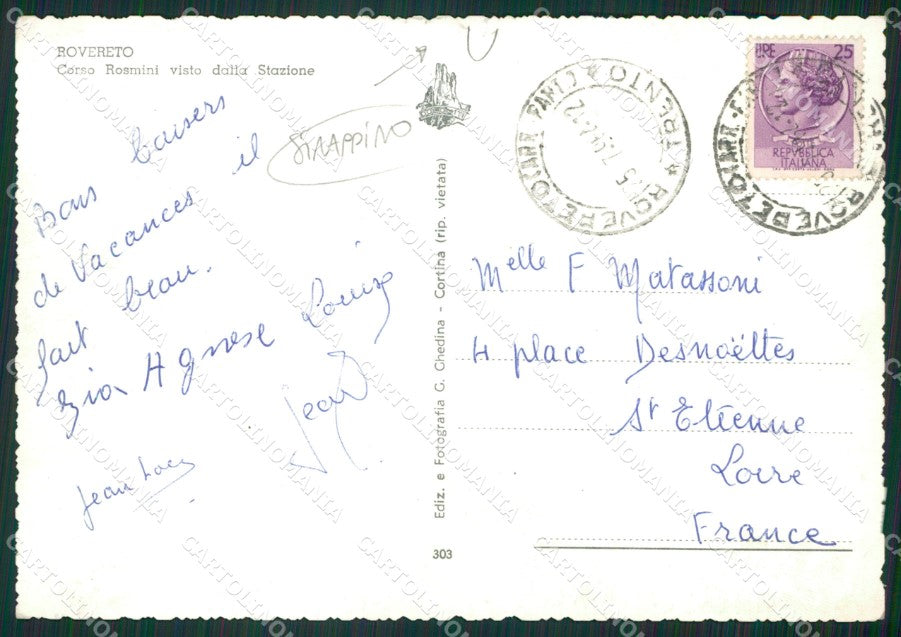 ROVERETO
Corso Rosmini visto dalla Stazione
STRAPPINO
Bons baisers
de Vacances il
fait beau.
Zia Agnese Louisa
Jean
Jean Loee
Ediz. e Fotografia G. Ghedina - Cortina (rip. vietata)
303
LIRE 25
REPVBBLICA
ITALIANA
ROVERETO
TRENTO
Melle F Matassoni
4 place Desnoëttes
St Etienne
Loire
France
CARTOLINOMANIA